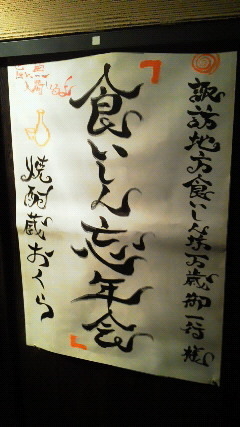 諏訪地方食いしん坊万歳御一行様
「食いしん忘年会」
焼酎蔵おくら